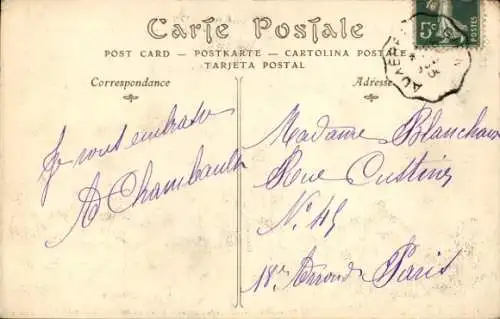 Carte Postale
POST CARD — POSTKARTE — CARTOLINA POSTALE
TARJETA POSTAL
Correspondance
Adresse
5c
Je vous embrasse
A Chambault
Madame Blanchard
Rue Custine
N° 45
18e Arrond. Paris